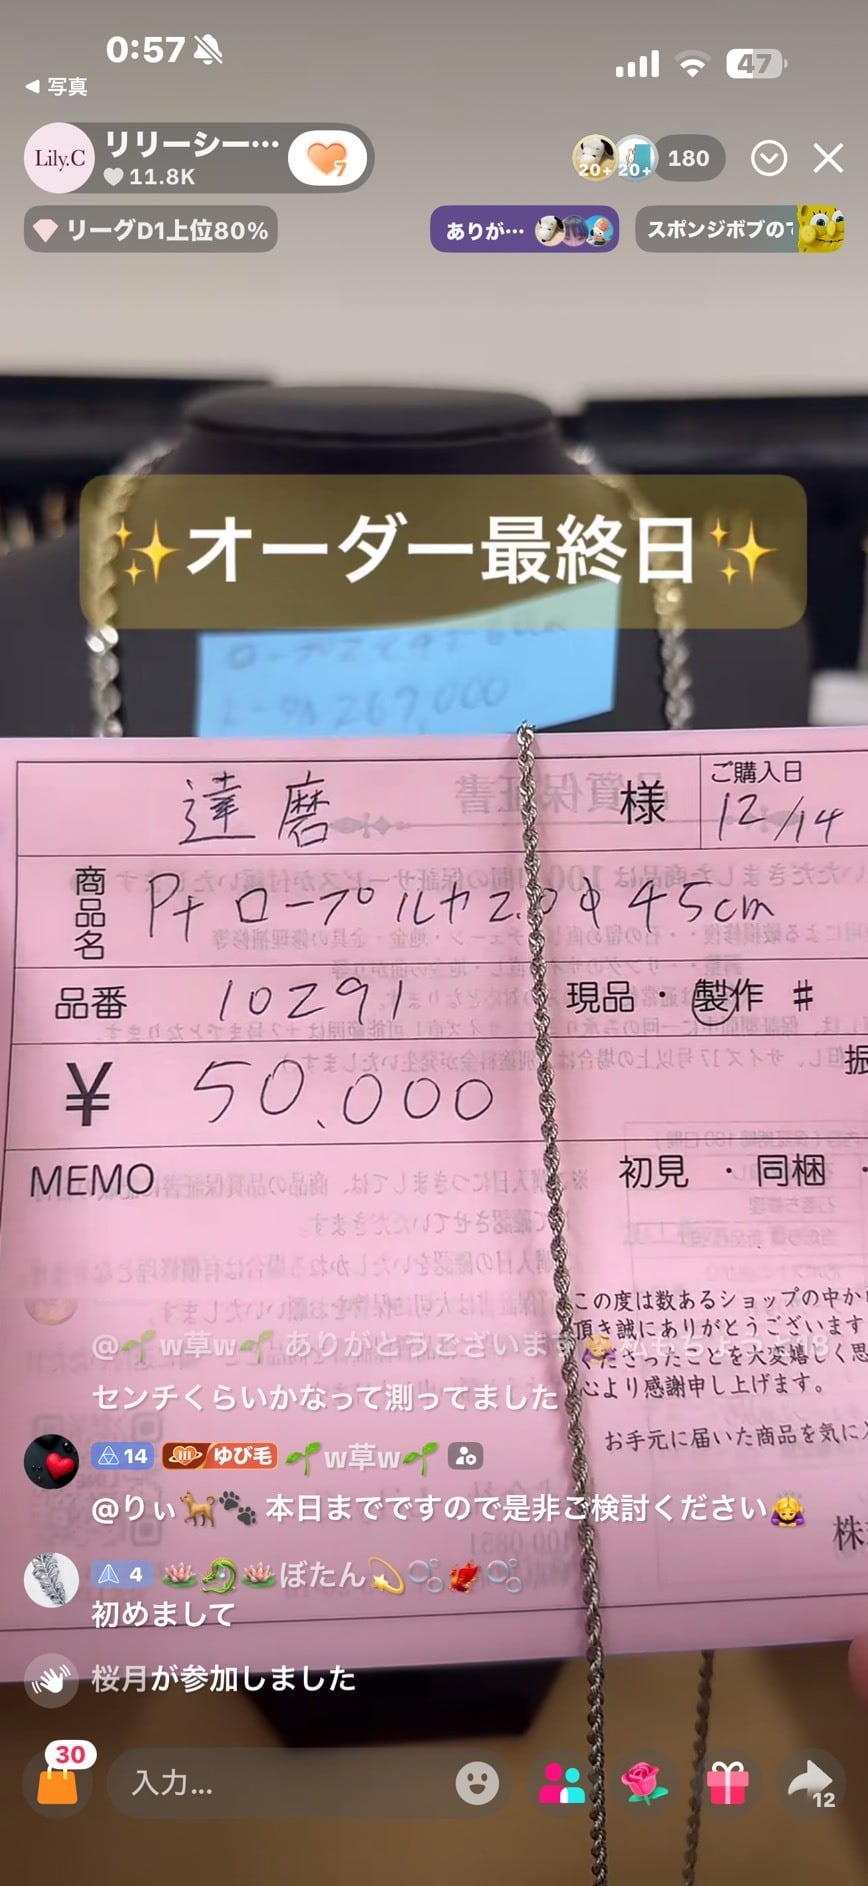 0:57
47
◀ 写真
Lily.C
リリーシー…
11.8K
7
20+
20+
180
リーグD1上位80%
ありが…
スポンジボブの
✨オーダー最終日✨
269,000
達磨 様
ご購入日
12/14
商品名
Pt ロープルヤ 2.0φ 45cm
品番
10291
現品・製作 #
¥ 50.000
振
MEMO
初見 ・同梱 ・
この度は数あるショップの中か
頂き誠にありがとうございます
くださったことを大変嬉しく思
心より感謝申し上げます。
お手元に届いた商品を気に
株
@🌱w草w🌱 ありがとうございます
センチくらいかなって測ってました
14
ゆび毛
🌱w草w🌱
@りぃ🐕🐾 本日までですので是非ご検討ください🙇‍♀️
4
🪷🐉🪷ぼたん💫🫧🐦‍🔥🫧
初めまして
桜月が参加しました
30
入力...
12